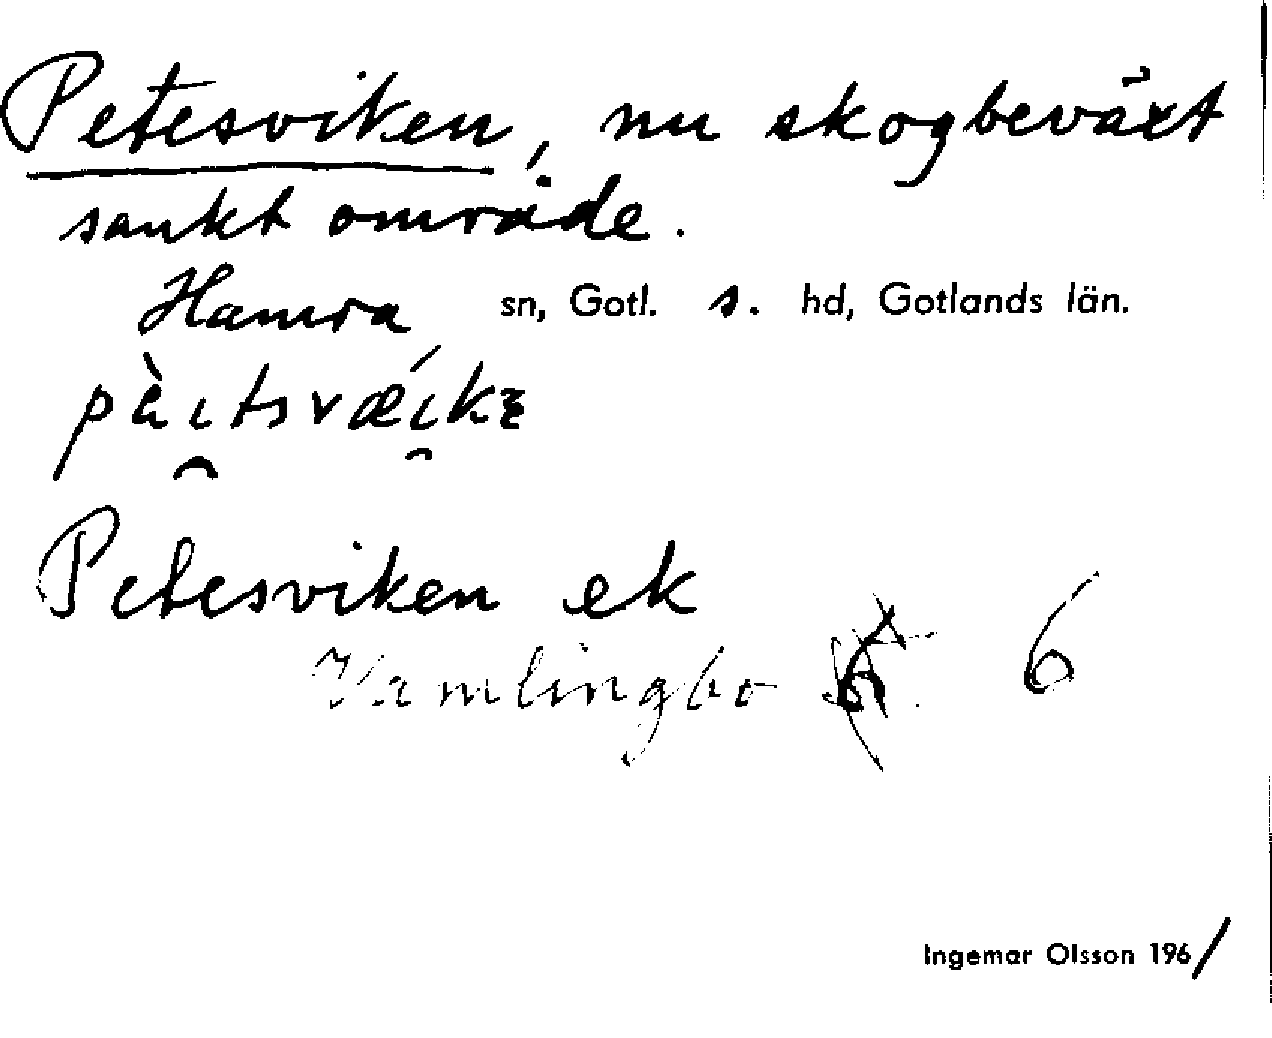 Petesviken, nu skogbeväxt
sankt område.
Hamra sn, Gotl. s. hd, Gotlands län.
Petesviken ek
Vamlingbo 6
Ingemar Olsson 1961